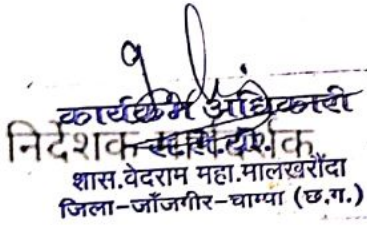 कार्यक्रम अधिकारी
निर्देशक
शास.वेदराम महा.मालखरौदा
जिला-जाँजगीर-चाम्पा (छ.ग.)